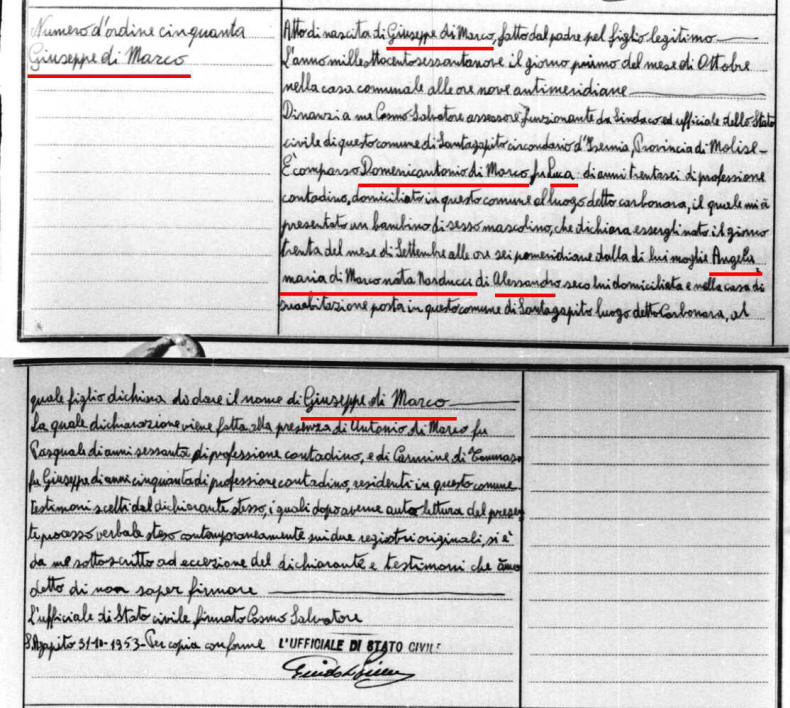 Numero d'ordine cinquanta
Giuseppe di Marco
Atto di nascita di Giuseppe di Marco, fatto dal padre pel figlio legittimo
L'anno milleottocentosessantanove il giorno primo del mese di Ottobre
nella casa comunale alle ore nove antimeridiane
Dinanzi a me Cosmo Salvatore assessore funzionante da Sindaco ed uffiziale dello Stato
civile di questo comune di Santagapito circondario d'Isernia, Provincia di Molise -
È comparso Domenicantonio di Marco fu Luca di anni trentasei di professione
contadino, domiciliato in questo comune al luogo detto carbonara, il quale mi à
presentato un bambino di sesso mascolino, che dichiara essergli nato il giorno
trenta del mese di Settembre alle ore sei pomeridiane dalla di lui moglie Angela
maria di Marco nata Narducci di Alessandro seco lui domiciliata e nella casa di
sua abitazione posta in questo comune di Santagapito luogo detto Carbonara, al
quale figlio dichiara di dare il nome di Giuseppe di Marco
La quale dichiarazione viene fatta alla presenza di Antonio di Marco fu
Pasquale di anni sessanta di professione contadino, e di Carmine di Tommaso
fu Giuseppe di anni cinquanta di professione contadino, residenti in questo comune
testimoni scelti dal dichiarante stesso, i quali dopo averne auto lettura del presen
te processo verbale steso contemporaneamente sui due registri originali, si è
da me sottoscritto ad eccezione del dichiarante e testimoni che ànno
detto di non saper firmare
L'ufficiale di Stato civile firmato Cosmo Salvatore
S. Agapito 31-10-1953 - Per copia conforme L'UFFICIALE DI STATO CIVILE